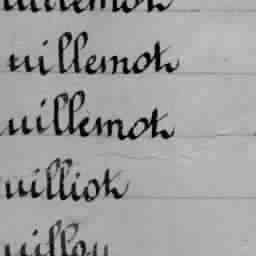 uillemot
uillemot
uillemot
uilliot
uilloy